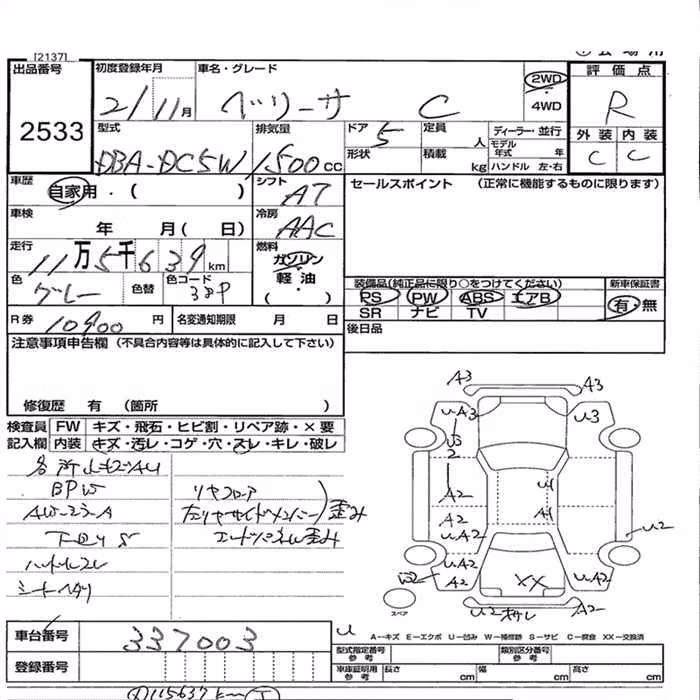 [2137]
出品番号 初度登録年月 車名・グレード 2WD 4WD 評価点
2533 2/11月 ベリーサ C R
外装 内装
C C
型式 排気量 ドア 定員 人 ディーラー・並行
DBA-DC5W 1500cc 5 モデル年式 年
形状 積載 kg ハンドル 左・右
車歴 自家用・( ) シフト AT セールスポイント (正常に機能するものに限ります)
車検 年 月( 日) 冷房 AAC
走行 11万5千639km 燃料 ガソリン 軽油 ( )
色 グレー 色替 色コード 38P
装備品(純正品に限り○をつけてください) 新車保証書
PS PW ABS エアB 有・無
SR ナビ TV
R券 10900円 名変通知期限 月 日 後日品
注意事項申告欄(不具合内容等は具体的に記入して下さい)
修復歴 有 (箇所 )
検査員記入欄 FW キズ・飛石・ヒビ割・リペア跡・×要
内装 キズ・汚レ・コゲ・穴・スレ・キレ・破レ
各所
BPW リヤフロア
AW-キズ-A 左リヤサイドメンバー 歪み
下回りS エンドパネルW歪み
ハンドルスレ
シートヘタリ
A3 A3
UA3 U3
U3
2
A2 U1
A2 A1
UA2 U2
UA2
W2 A2 XX UA2
スペア U2 A2
U A--キズ E--エクボ U--凹み W--補修跡 S--サビ C--腐食 XX--交換済
車台番号 337003
型式指定番号 参考 類別区分番号 参考
登録番号 車庫証明用 参考 長さ cm 幅 cm 高さ cm
115637km